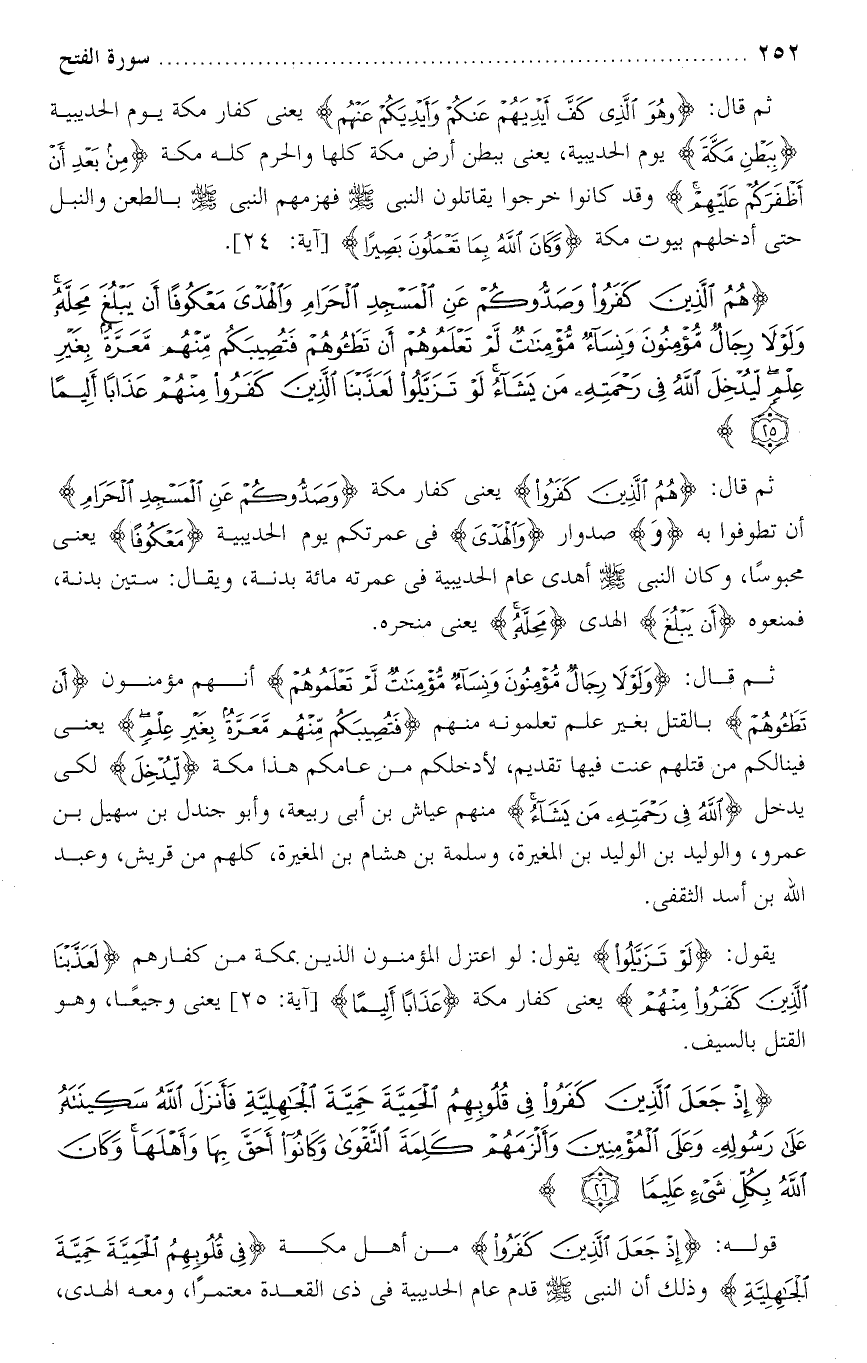 ٢٥٢ ........................................................................ سورة الفتح
ثم قال: ﴿وَهُوَ ٱلَّذِى كَفَّ أَيْدِيَهُمْ عَنكُمْ وَأَيْدِيَكُمْ عَنْهُم﴾ يعنى كفار مكة يوم الحديبية
﴿بِبَطْنِ مَكَّةَ﴾ يوم الحديبية، يعنى ببطن أرض مكة كلها والحرم كله مكة ﴿مِنۢ بَعْدِ أَنْ
أَظْفَرَكُمْ عَلَيْهِمْ﴾ وقد كانوا خرجوا يقاتلون النبى ﷺ فهزمهم النبى ﷺ بالطعن والنبل
حتى أدخلهم بيوت مكة ﴿وَكَانَ ٱللَّهُ بِمَا تَعْمَلُونَ بَصِيرًا﴾ [آية: ٢٤].
﴿هُمُ ٱلَّذِينَ كَفَرُوا۟ وَصَدُّوكُمْ عَنِ ٱلْمَسْجِدِ ٱلْحَرَامِ وَٱلْهَدْىَ مَعْكُوفًا أَن يَبْلُغَ مَحِلَّهُۥۚ
وَلَوْلَا رِجَالٌ مُّؤْمِنُونَ وَنِسَآءٌ مُّؤْمِنَٰتٌ لَّمْ تَعْلَمُوهُمْ أَن تَطَـُٔوهُمْ فَتُصِيبَكُم مِّنْهُم مَّعَرَّةٌۢ بِغَيْرِ
عِلْمٍۖ لِّيُدْخِلَ ٱللَّهُ فِى رَحْمَتِهِۦ مَن يَشَآءُۚ لَوْ تَزَيَّلُوا۟ لَعَذَّبْنَا ٱلَّذِينَ كَفَرُوا۟ مِنْهُمْ عَذَابًا أَلِيمًا
٢٥ ﴾
ثم قال: ﴿هُمُ ٱلَّذِينَ كَفَرُوا۟﴾ يعنى كفار مكة ﴿وَصَدُّوكُمْ عَنِ ٱلْمَسْجِدِ ٱلْحَرَامِ﴾
أن تطوفوا به ﴿وَ﴾ صدوار ﴿وَٱلْهَدْىَ﴾ فى عمرتكم يوم الحديبية ﴿مَعْكُوفًا﴾ يعنى
محبوسًا، وكان النبى ﷺ أهدى عام الحديبية فى عمرته مائة بدنة، ويقال: ستين بدنة،
فمنعوه ﴿أَن يَبْلُغَ﴾ الهدى ﴿مَحِلَّهُۥۚ﴾ يعنى منحره.
ثم قال: ﴿وَلَوْلَا رِجَالٌ مُّؤْمِنُونَ وَنِسَآءٌ مُّؤْمِنَٰتٌ لَّمْ تَعْلَمُوهُمْ﴾ أنهم مؤمنون ﴿أَن
تَطَـُٔوهُمْ﴾ بالقتل بغير علم تعلمونه منهم ﴿فَتُصِيبَكُم مِّنْهُم مَّعَرَّةٌۢ بِغَيْرِ عِلْمٍۖ﴾ يعنى
فينالكم من قتلهم عنت فيها تقديم، لأدخلكم من عامكم هذا مكة ﴿لِّيُدْخِلَ﴾ لكى
يدخل ﴿ٱللَّهُ فِى رَحْمَتِهِۦ مَن يَشَآءُۚ﴾ منهم عياش بن أبى ربيعة، وأبو جندل بن سهيل بن
عمرو، والوليد بن الوليد بن المغيرة، وسلمة بن هشام بن المغيرة، كلهم من قريش، وعبد
الله بن أسد الثقفى.
يقول: ﴿لَوْ تَزَيَّلُوا۟﴾ يقول: لو اعتزل المؤمنون الذين بمكة من كفارهم ﴿لَعَذَّبْنَا
ٱلَّذِينَ كَفَرُوا۟ مِنْهُمْ﴾ يعنى كفار مكة ﴿عَذَابًا أَلِيمًا﴾ [آية: ٢٥] يعنى وجيعًا، وهو
القتل بالسيف.
﴿إِذْ جَعَلَ ٱلَّذِينَ كَفَرُوا۟ فِى قُلُوبِهِمُ ٱلْحَمِيَّةَ حَمِيَّةَ ٱلْجَٰهِلِيَّةِ فَأَنزَلَ ٱللَّهُ سَكِينَتَهُۥ
عَلَىٰ رَسُولِهِۦ وَعَلَى ٱلْمُؤْمِنِينَ وَأَلْزَمَهُمْ كَلِمَةَ ٱلتَّقْوَىٰ وَكَانُوٓا۟ أَحَقَّ بِهَا وَأَهْلَهَاۚ وَكَانَ
ٱللَّهُ بِكُلِّ شَىْءٍ عَلِيمًا ٢٦ ﴾
قوله: ﴿إِذْ جَعَلَ ٱلَّذِينَ كَفَرُوا۟﴾ من أهل مكة ﴿فِى قُلُوبِهِمُ ٱلْحَمِيَّةَ حَمِيَّةَ
ٱلْجَٰهِلِيَّةِ﴾ وذلك أن النبى ﷺ قدم عام الحديبية فى ذى القعدة معتمرًا، ومعه الهدى،